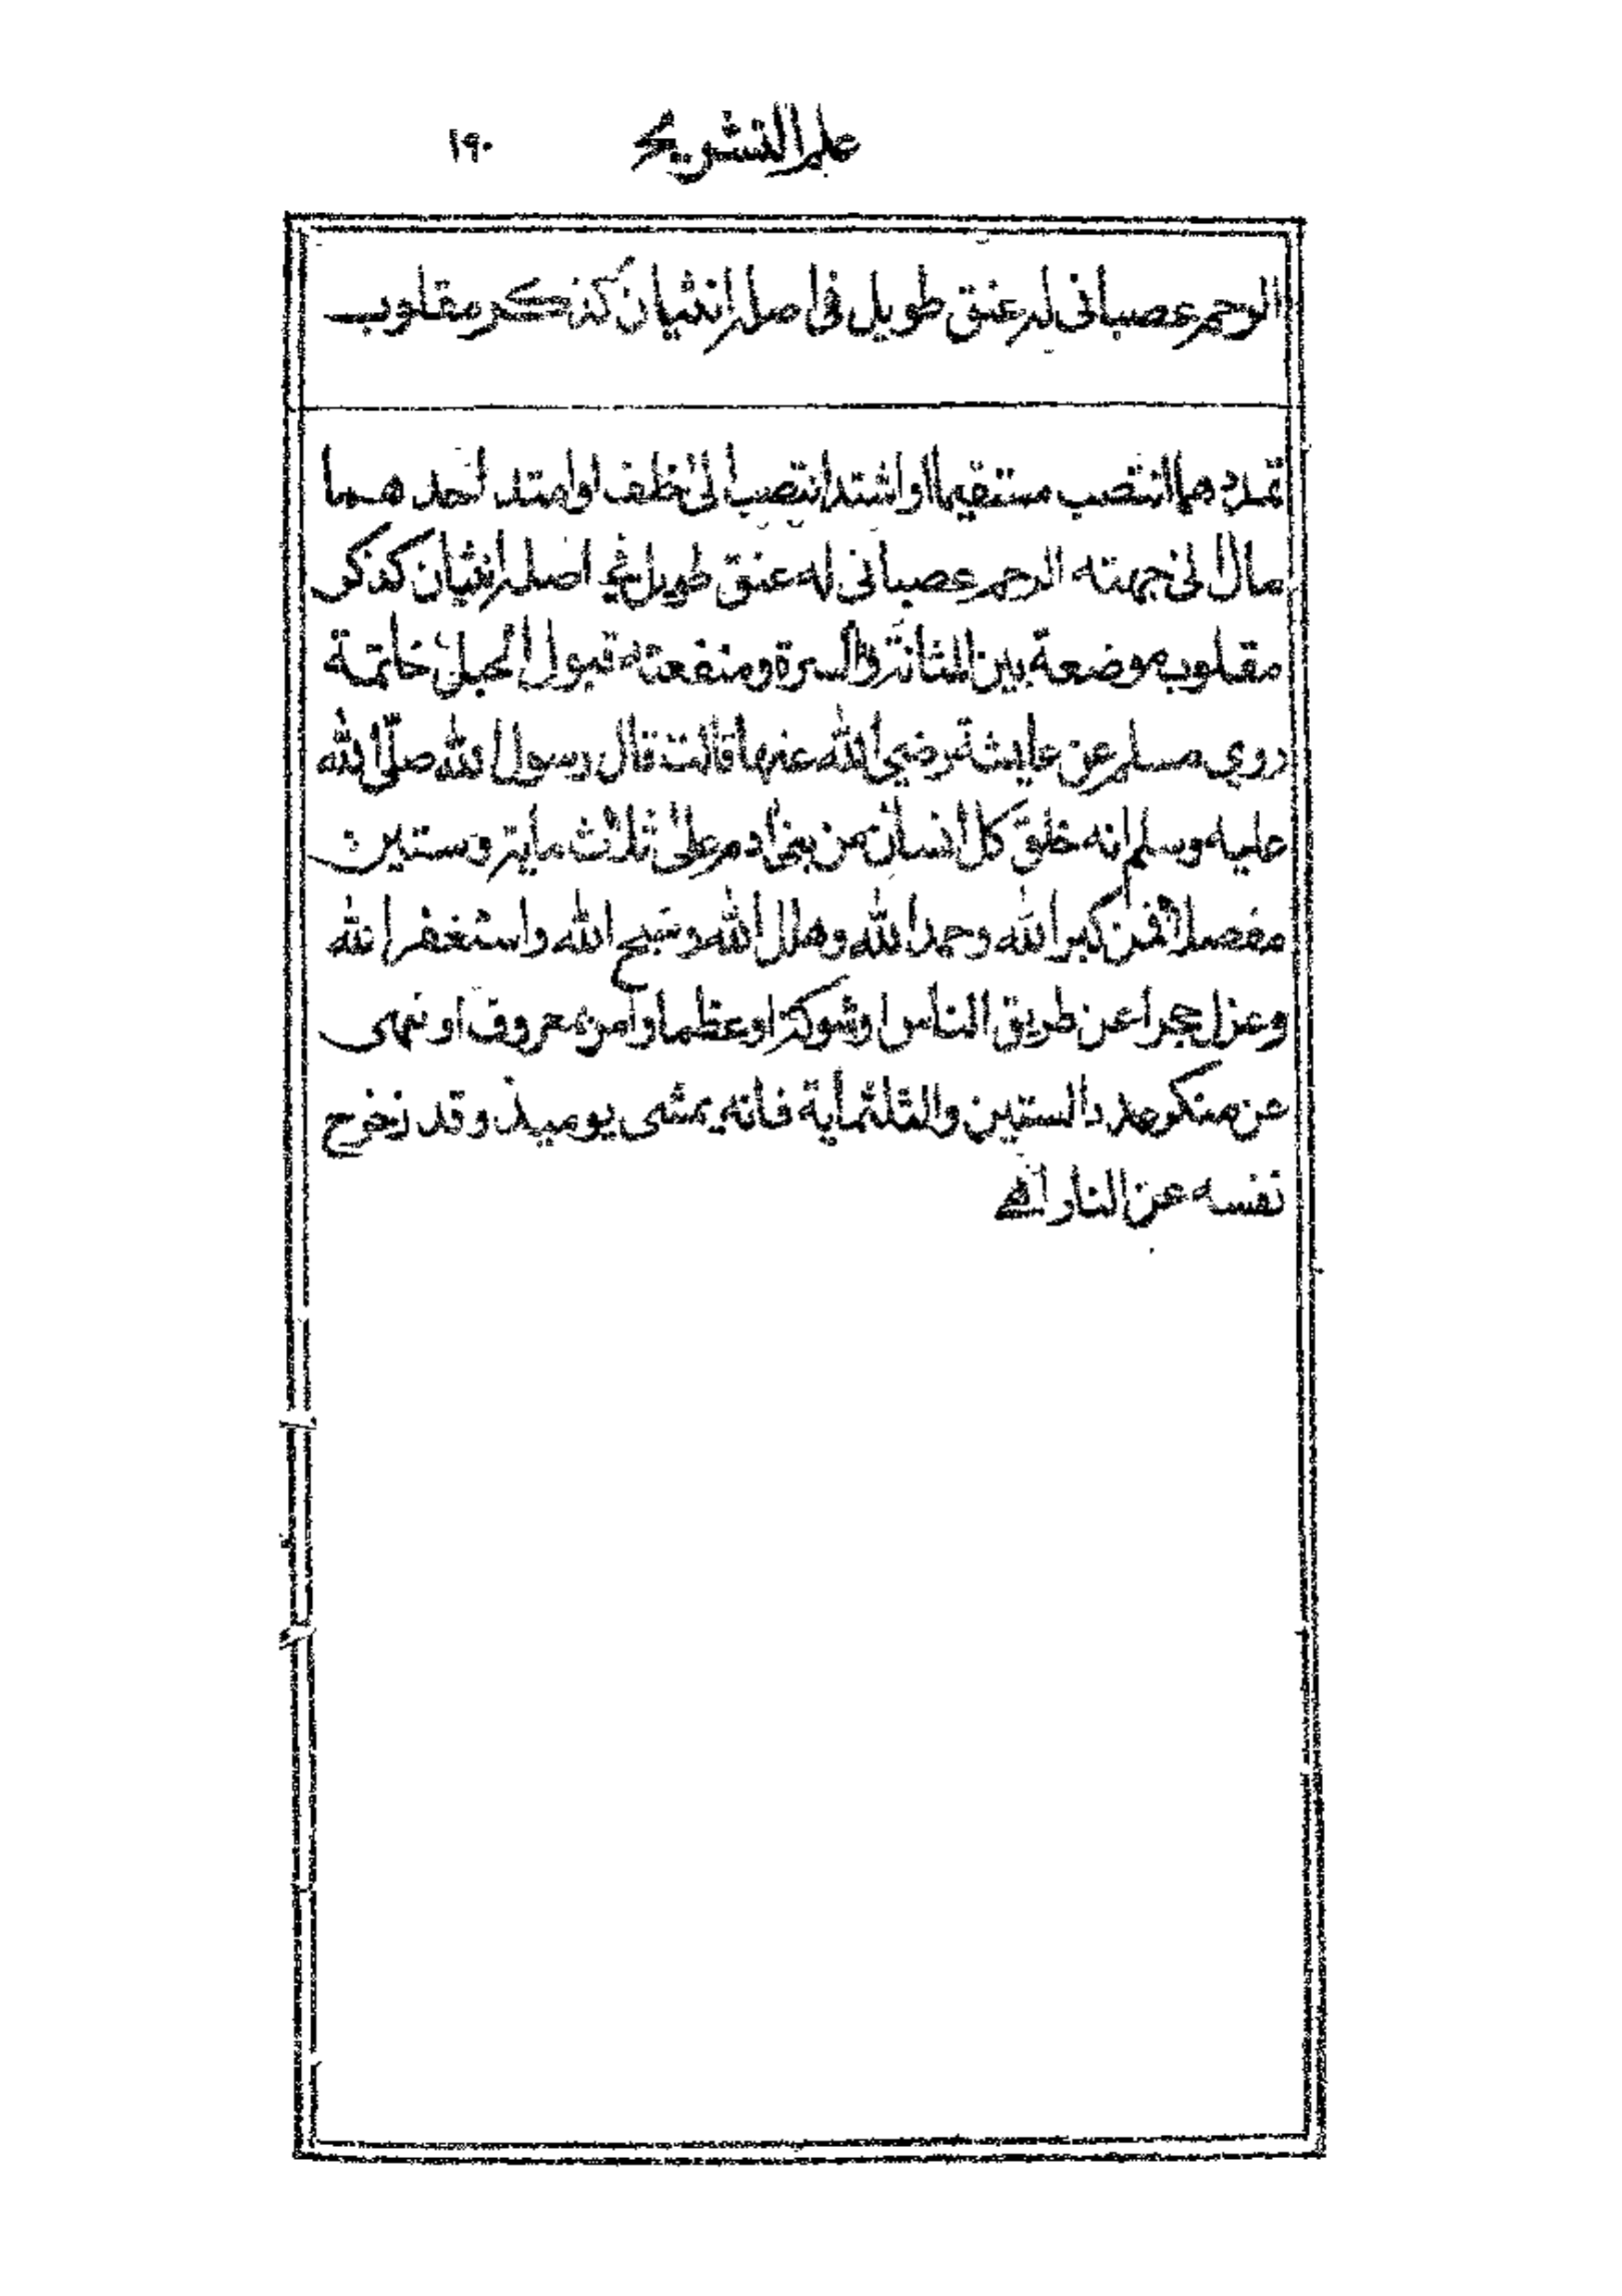 علم التشريح ١٩٠
الرحم عصباني له عنق طويل في اصله انثيان كذكر مقلوب
تمددهما انتصب مستقيما او اشتد انتصب الى خلف او امتد احدهما
مال الى جهته الرحم عصباني له عنق طويل في اصله انثيان كذكر
مقلوب موضعة بين المثانة والسرة ومنفعته قبول الحبل خاتمة
روي مسلم عن عايشة رضي الله عنها قالت قال رسول الله صلى الله
عليه وسلم انه خلق كل انسان من بني ادم على ثلاث ماية وستين
مفصلا فمن كبر الله وحمد الله وهلل الله وسبح الله واستغفر الله
وعزل حجرا عن طريق الناس او شوكة او عظما وامر بمعروف او نهى
عن منكر عدد الستين والثلثماية فانه يمشى يوميذ وقد زخرح
نفسه عن النار